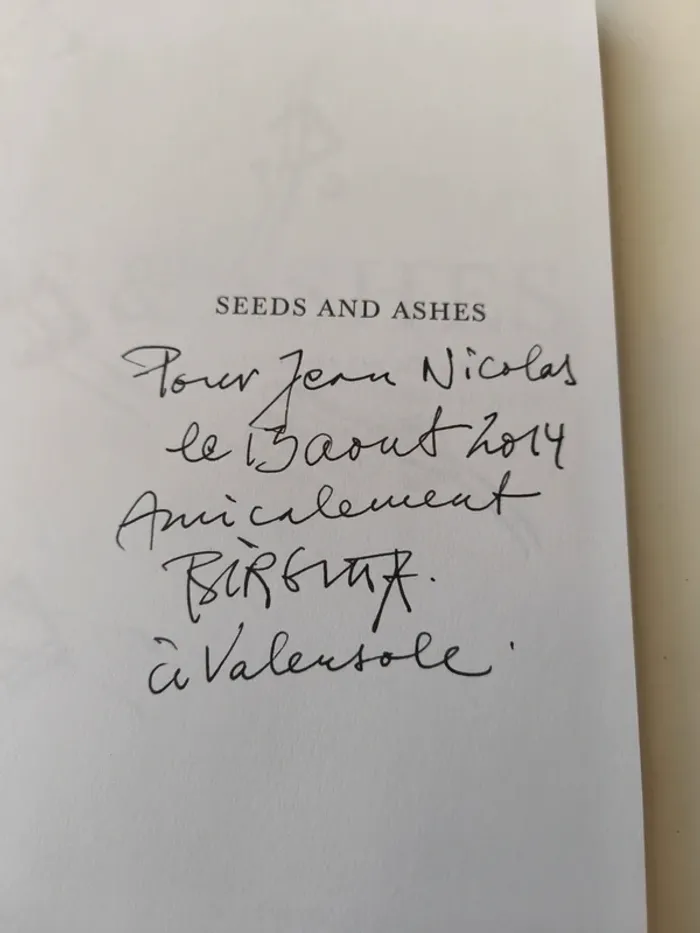 SEEDS AND ASHES
Pour Jean Nicolas
le 13 aout 2014
Amicalement
à Valensole.